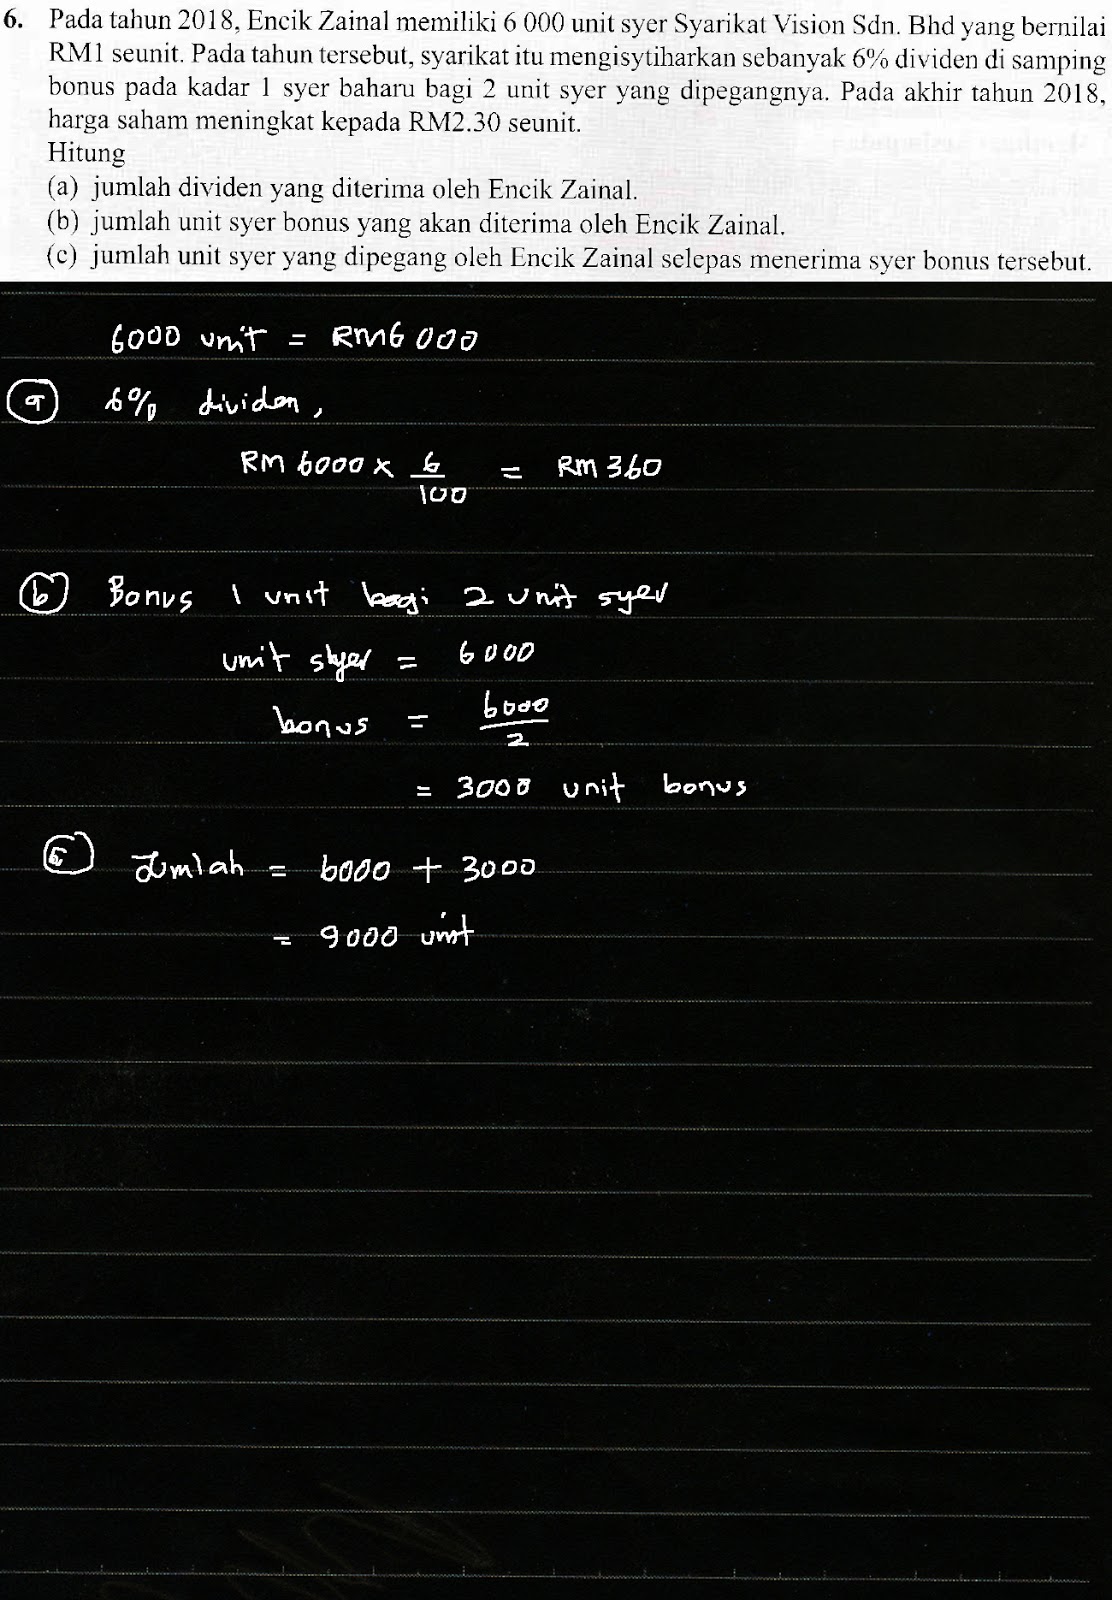 6. Pada tahun 2018, Encik Zainal memiliki 6 000 unit syer Syarikat Vision Sdn. Bhd yang bernilai
RM1 seunit. Pada tahun tersebut, syarikat itu mengisytiharkan sebanyak 6% dividen di samping
bonus pada kadar 1 syer baharu bagi 2 unit syer yang dipegangnya. Pada akhir tahun 2018,
harga saham meningkat kepada RM2.30 seunit.
Hitung
(a) jumlah dividen yang diterima oleh Encik Zainal.
(b) jumlah unit syer bonus yang akan diterima oleh Encik Zainal.
(c) jumlah unit syer yang dipegang oleh Encik Zainal selepas menerima syer bonus tersebut.
6000 unit = RM6 000
(a) 6% dividen,
RM 6000 x 6/100 = RM 360
(b) Bonus 1 unit bagi 2 unit syer
unit syer = 6000
bonus = 6000/2
= 3000 unit bonus
(c) Jumlah = 6000 + 3000
= 9000 unit